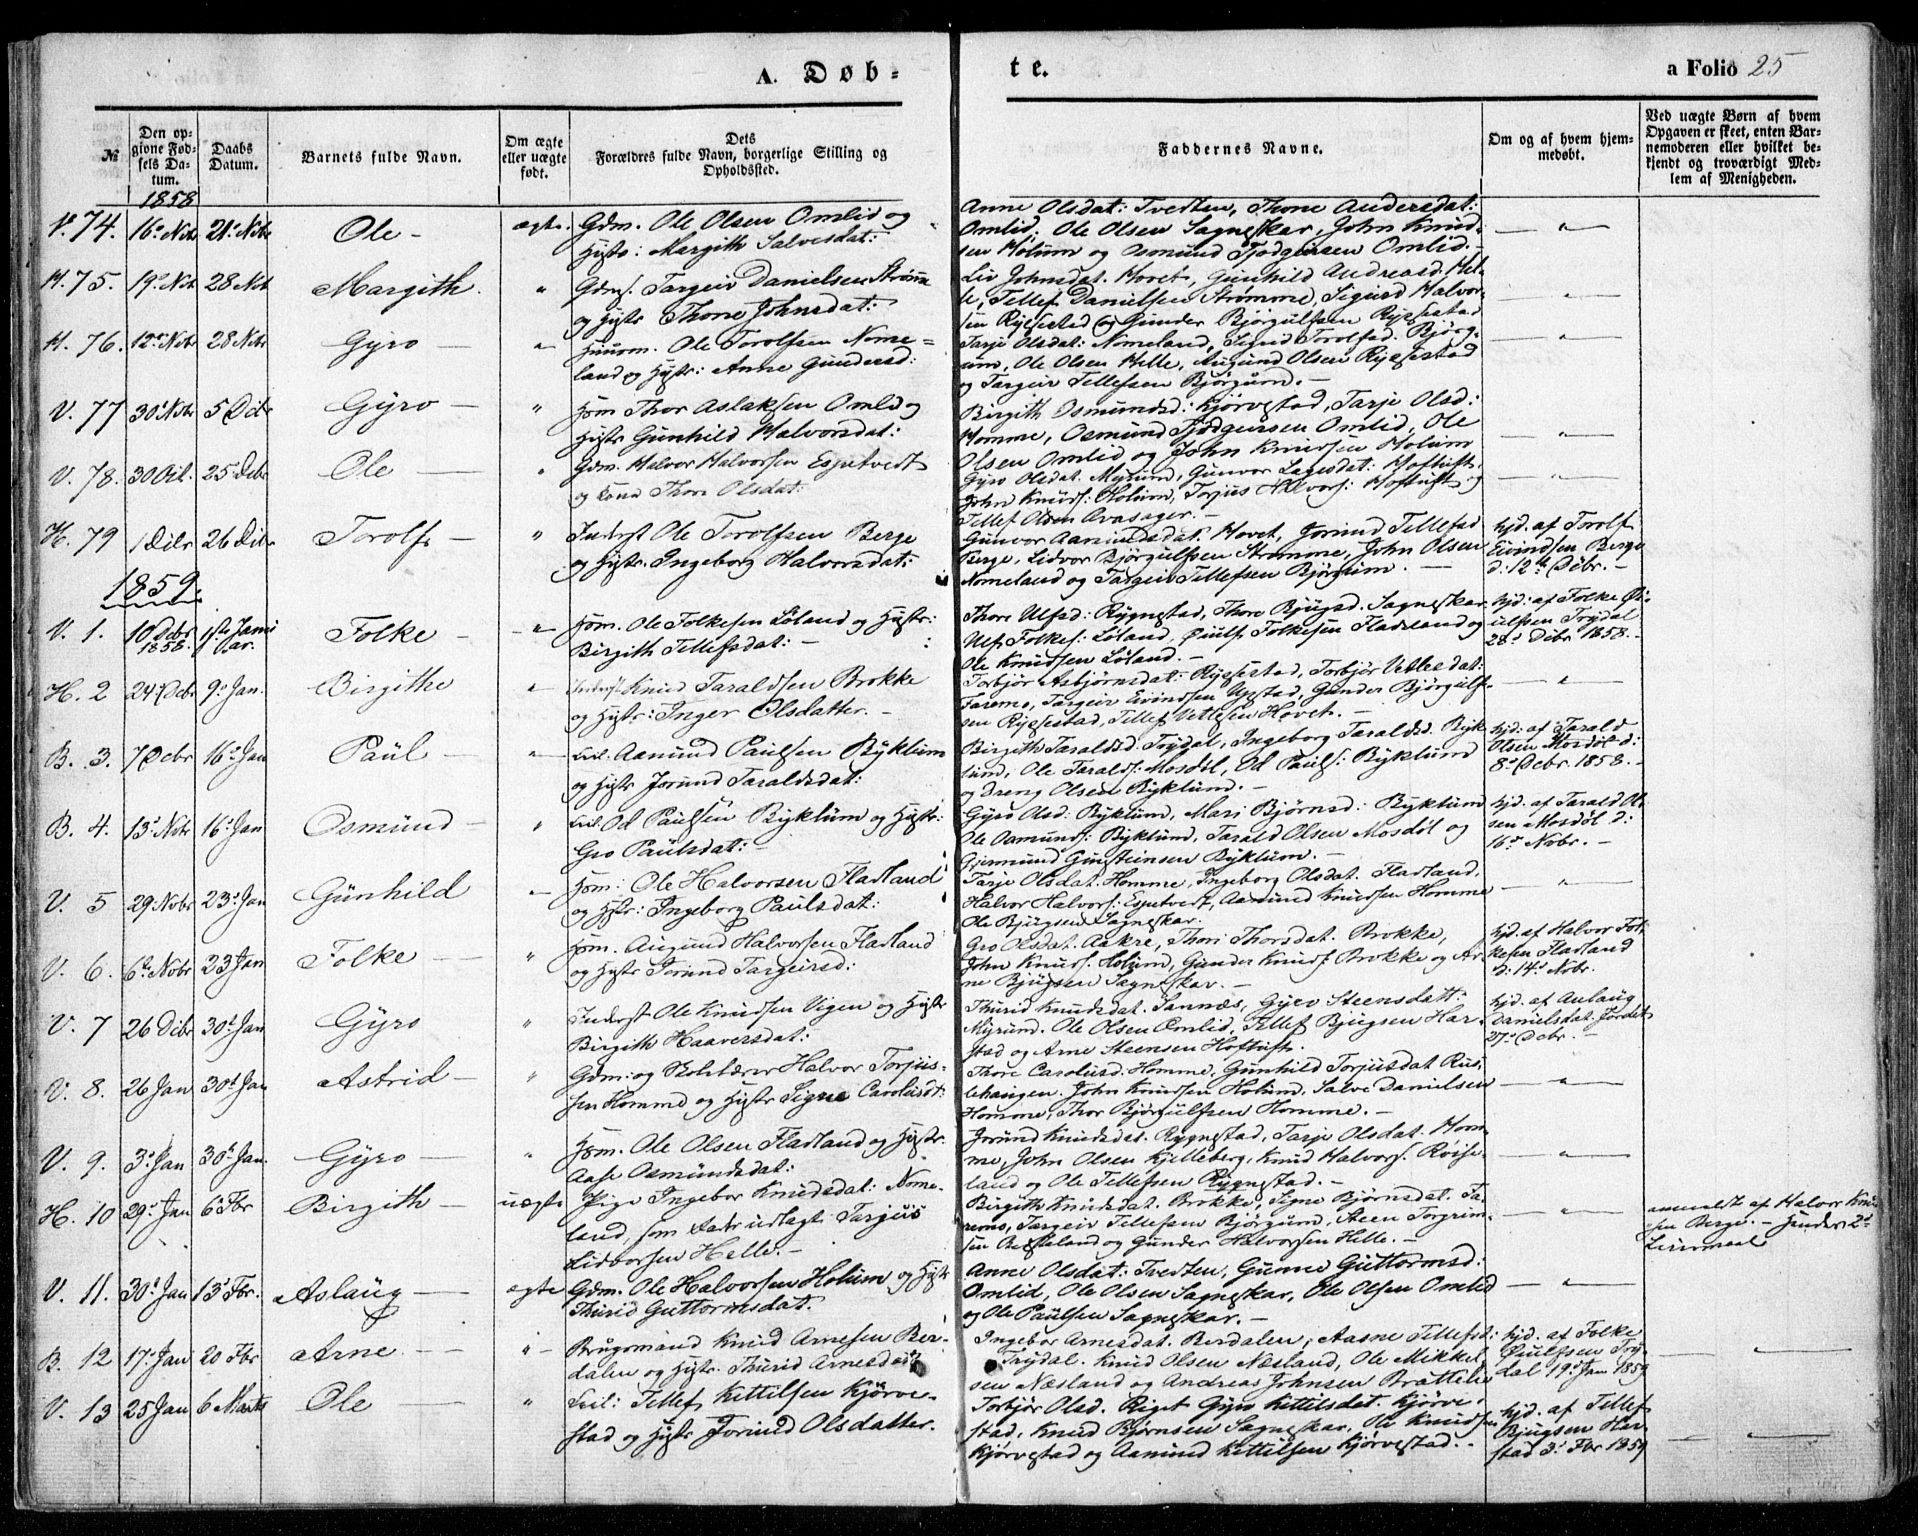 A. Døb-
te.
a Folio 25
№
Den opgivne Fødsels Datum.
Daabs Datum.
Barnets fulde Navn.
Om ægte eller uægte født.
Dets Forældres fulde Navn, borgerlige Stilling og Opholdssted.
Faddernes Navne.
Om og af hvem hjemmedøbt.
Ved uægte Børn af hvem Opgaven er skeet, enten Barnemoderen eller hvilket bekjendt og troværdigt Medlem af Menigheden.
1858
V. 74. 16de Nobr 21de Nobr Ole - ægte. Gdm. Ole Olsen Omlid og
Hustr: Margith Salvesdat:
Anne Olsdat: Tvedten, Thone Andersdat:
Omlid. Ole Olsen Sagneskar, John Knud-
sen Holum og Osmund Tjodgeirsen Omlid. -
H. 75. 19de Nobr 28 Nobr Margith. " Gdm. Targeir Danielsen Strømme
og Hustr Thone Johnsdat:
Liv Johnsdat. Hovet, Gunhild Andreasd. Hel-
le, Tellef Danielsen Strømme, Sigurd Halvor-
sen Rysestad og Gunder Bjørgulfsen Rysestad
H. 76. 12te Nobr 28 Nobr Gyro - " Huusm. Ole Torolfsen Nome-
land og Hustr: Anne Gundersd:
Tarje Olsdat: Nomeland, Signe Torolfsd. Bjørg-
um, Ole Olsen Helle, Augund Olsen Rysestad
og Targeir Tellefsen Bjørgum. -
V. 77 30te Nobr 5 Debr Gyro - " Hsm Thor Aslaksen Omlid og
Hustr Gunhild Halvorsdat:
Birgith Osmundsd: Kjørvestad, Tarje Olsd:
Homme, Osmund Tjodgeirsen Omlid, Ole
Olsen Omlid og John Knudsen Holum
V. 78. 30 25de Debr Ole - " Gdm. Halvor Halvorsen Espetvedt
og Kone Thore Olsdat:
Gyro Olsdat. Myrum, Gunvor Lagesdat: Hoftuft,
John Knuds: Holum, Torjus Halvors: Hoftuft og
Tellef Olsen Avasager. -
H. 79 1 Debr 26 Debr Torolf - " Inderst Ole Torolfsen Berge
og Hustr. Ingeborg Halvorsdat:
Gunvor Aamundsdat. Hovet, Jorund Tellefsd
Berge, Lidvor Bjørgulfsen Strømme, John Olsen
Nomeland og Targeir Tellefsen Bjørgum. -
hjd. af Torolf
Eivindsen Berge
d: 12te Debr. -
1859.
V. 1. 10 Debr 1858. 1ste Januar. Folke - " Hsm. Ole Folkesen Løland og Hustr:
Birgith Tellefsdat: -
Thore Ulfsd: Rygnestad, Thore Bjugsd. Sagneskar
Ulf Folkes: Løland, Øiulf Folkesen Fladeland og
Ole Knudsen Løland. -
hjd: af Folke Øi-
ulfsen Trydal
28de Debr 1858. -
H. 2 24 Debr 9de Jan. Birgithe " Inderst Knud Taraldsen Brokke
og Hustr: Inger Olsdatter. -
Torbjør Asbjørnsdat: Rysestad, Torbjør Vetlesdat:
Faremo, Targeir Eivindsen Upstad, Gunder Bjørgulf-
sen Rysestad, Tellef Vetlesen Hovet. -
B. 3. 7 Debr 16de Jan Paul - " Leil. Aamund Paulsen Byklum
og Hustr Jorund Taraldsdat:
Birgith Taraldsd. Trydal, Ingeborg Taraldsd. Byk-
lum, Ole Taralds: Mosdøl, Od Pauls: Byklum
og Dreng Olsen Byklum. -
hjd: af Tarald
Olsen Mosdøl d:
8de Debr. 1858. -
B. 4. 13de Nobr 16de Jan Osmund - " Leil. Od Paulsen Byklum og Hustr:
Gro Paulsdat: -
Gyro Olsd: Byklum, Mari Bjørnsd: Byklum
Ole Aamunds: Byklum, Tarald Olsen Mosdøl og
Gjermund Gunsteinsen Byklum. -
hjd. af Tarald Ol-
sen Mosdøl d:
16de Nobr. -
V. 5 29 Nobr 23de Jan Gunhild " Hsm: Ole Halvorsen Fladland
og Hustr: Ingeborg Paulsdat:
Tarje Olsdat. Homme, Ingeborg Olsdat. Fladland,
Halvor Halvors: Espetvedt, Aamund Knudsen Homme
Ole Bjugsen Sagneskar.
V. 6. 6te Nobr 23 Jan Folke - " Hsm. Augund Halvorsen Fladland
og Hustr Jorund Targeirsd:
Gro Olsdat: Aakre, Thori Thorsdat. Brokke,
John Knuds. Holum, Gunder Knuds Brokke og Ar-
ne Bjugsen Sagneskar. -
hjd. af Halvor Fol-
kesen Fladland
d: 14de Nobr.
V. 7 26 Debr 30te Jan Gyro " Inderst Ole Knudsen Vigen og Hustr
Birgith Haaversdat:
Thurid Knudsdat. Sannæs, Gyro Steensdatt:
Myrum. Ole Olsen Omlid, Tellef Bjugsen Har-
stad og Arne Steensen Hoftuft.
hjd. af Aslaug
Danielsdat. Jordet
27de Debr. -
V. 8. 26 Jan 30te Jan Astrid - " Gdm: og Skolelærer Halvor Torjus-
sen Homme og Hustr Signe Carolusdt:
Thore Carolusd: Homme, Gunhild Torjusdat Rus-
lehaugen. John Knudsen Holum, Salve Danielsen
Homme, Thor Bjørgulfsen Homme. -
V. 9. 3de Jan 30te Jan. Gyro - " Hsm. Ole Olsen Fladland og Hustr.
Aase Osmundsdat:
Jorund Knudsdat. Rygnestad, Tarje Olsdat. Hom-
me, John Olsen Kjelleberg, Knud Halvors. Røise-
land og Ole Tellefsen Rygnestad. -
H. 10 29de Jan 6te Fbr Birgith - uægte Pige Ingebor Knudsdat: Nome-
land, som Fader udlagt Targeis
Lidvorsen Helle. -
Birgith Knudsdat. Brokke, Signe Bjørnsdat. Fa-
remo, Targeir Tellefsen Bjørgum, Steen Torgrim-
sen og Gunder Halvorsen Helle. -
anmeldt af Halvor Knud-
sen Berge. -
V. 11. 30te Jan 13de Fbr. Aslaug - ægte Gdm. Ole Halvorsen Holum og Hustr
Thurid Guttormsdat.
Anne Olsdat: Tvedten, Gunne Guttormsd:
Omlid, Ole Olsen Sagneskar, Ole Olsen Omlid
og Ole Paulsen Sagneskar. -
B. 12 17de Jan 20 Fbr Arne - " Brugsmand Knud Arnesen Ber-
dalen og Hustr. Thurid Arnesdatt
Ingebor Arnesdat. Berdalen, Aasne Tellefsd:
Trydal. Knud Olsen Næsland, Ole Mikkel-
sen Næsland og Andreas Johnsen Bratteli
hjd. af Folke
Øiulfsen Try-
dal 19de Jan 1859.
V. 13 25 Jan 6 Marts Ole - " Leil: Tellef Kittilsen Kjørve-
stad og Hustr Jorund Olsdatter.
Torbjør Olsd. Riget Gyro Kittilsdat. Kjørve-
stad, Knud Bjørnsen Sagneskar, Ole Knudsen
Kjørvestad og Aamund Kittilsen Kjørvestad. -
hjd. af Tellef
Bjugsen Har-
stad 3de Fbr 1859